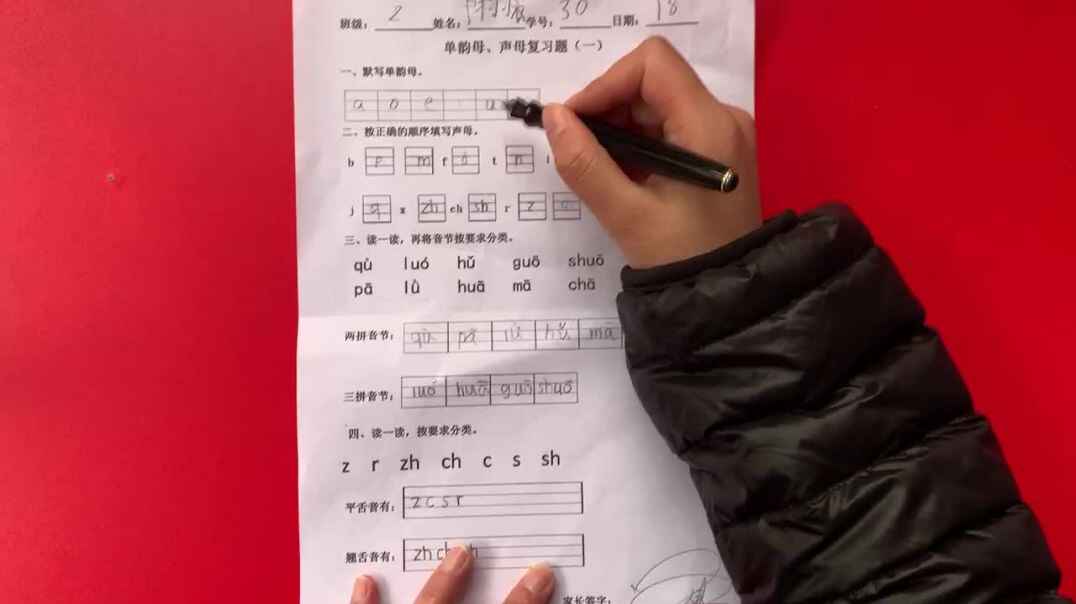 班级： 2 姓名： 学号： 30 日期： 18
单韵母、声母复习题（一）
一、默写单韵母。
a o e i u
二、按正确的顺序填写声母。
b p m f d t n l
j q x zh ch sh r z c
三、读一读，再将音节按要求分类。
qù luó hǔ guō shuō
pā lǜ huā mā chā
两拼音节： qù pā lǜ hǔ mā
三拼音节： luó huā guō shuō
四、读一读，按要求分类。
z r zh ch c s sh
平舌音有： z c s r
翘舌音有： zh ch
家长签字：